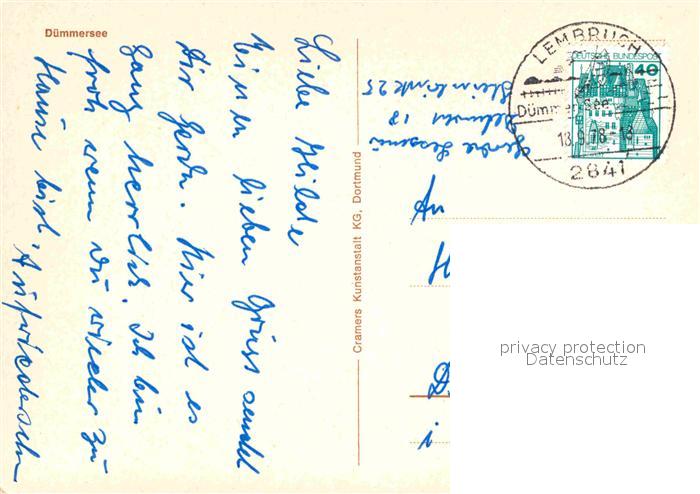 Dümmersee
Liebe Hilde
Einen lieben Gruss sendet
Dir Gerda. Hier ist es
ganz herrlich. Ich bin
froh wenn Du wieder zu
Hause bist. Aufwiedersehn
Cramers Kunstanstalt KG, Dortmund
Gerda
18
25
LEMBRUCH
DEUTSCHE BUNDESPOST
40
Dümmer-See
18.9.78-18
2841
An
H
D
i
privacy protection
Datenschutz